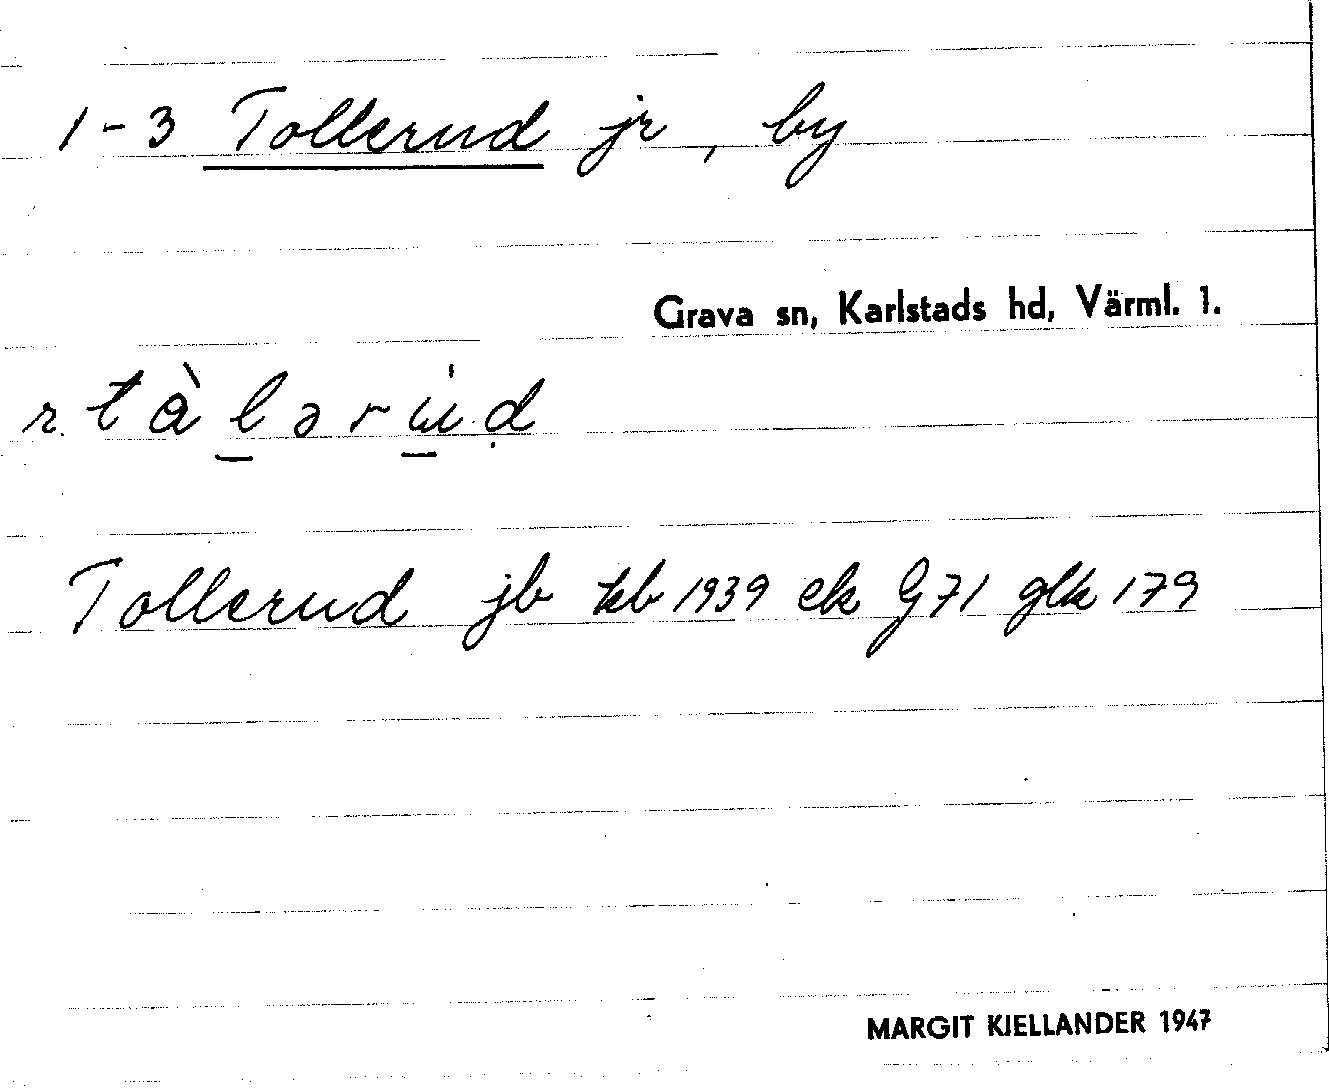 1-3 Tollerud jr, by
Grava sn, Karlstads hd, Värml. 1.
r. tàl̠əru̠̍d
Tollerud jb kb 1939 ek G71 glk 179
MARGIT KJELLANDER 1947